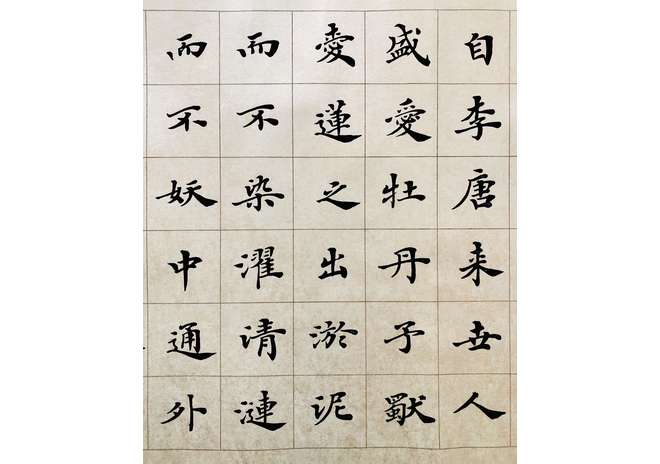 自李唐来世人
盛愛牡丹予獸
愛蓮之出淤泥
而不染濯清漣
而不妖中通外